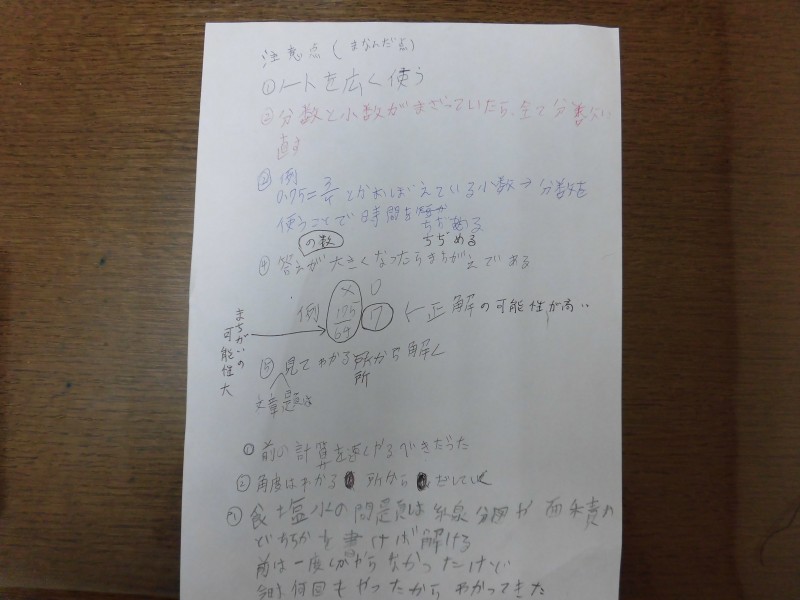 注意点(まなんだ点)
①ノートを広く使う
②分数と小数がまざっていたら、全て分数に
直す
③例
0.75=3/4とかおぼえている小数→分数を
使うことで時間を
ちぢめる
ちぢめる
の数
④答えが大きくなったらまちがえである
× ○
例 175/64 7 ←正解の可能性が高い
まちがいの
可能性大
⑤見てわかる所から解く
所
文章題は
①前の計算を速くやるべきだった
②角度はわかる所から だしていく
③食塩水の問題は線分図か面積の
どちらかを書けば解ける
前は一度しかやらなかったけど
何回もやったからわかってきた